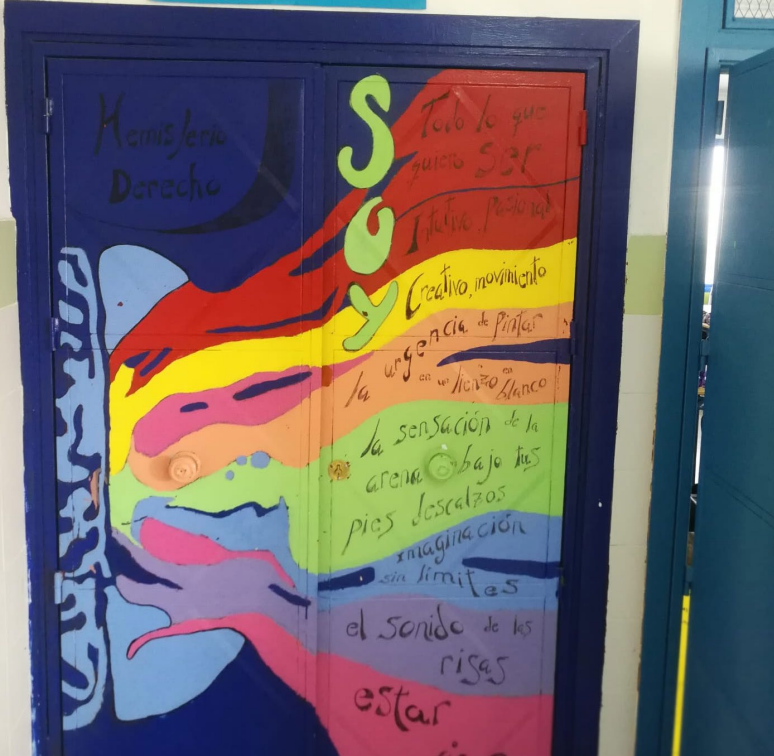 Hemisferio
Derecho
SOY
Todo lo que
quiero Ser
Intuitivo, Pasional
Creativo, movimiento
la urgencia de Pintar
en un lienzo en blanco
la sensación de la
arena bajo tus
pies descalzos
imaginación
sin límites
el sonido de las
risas
estar